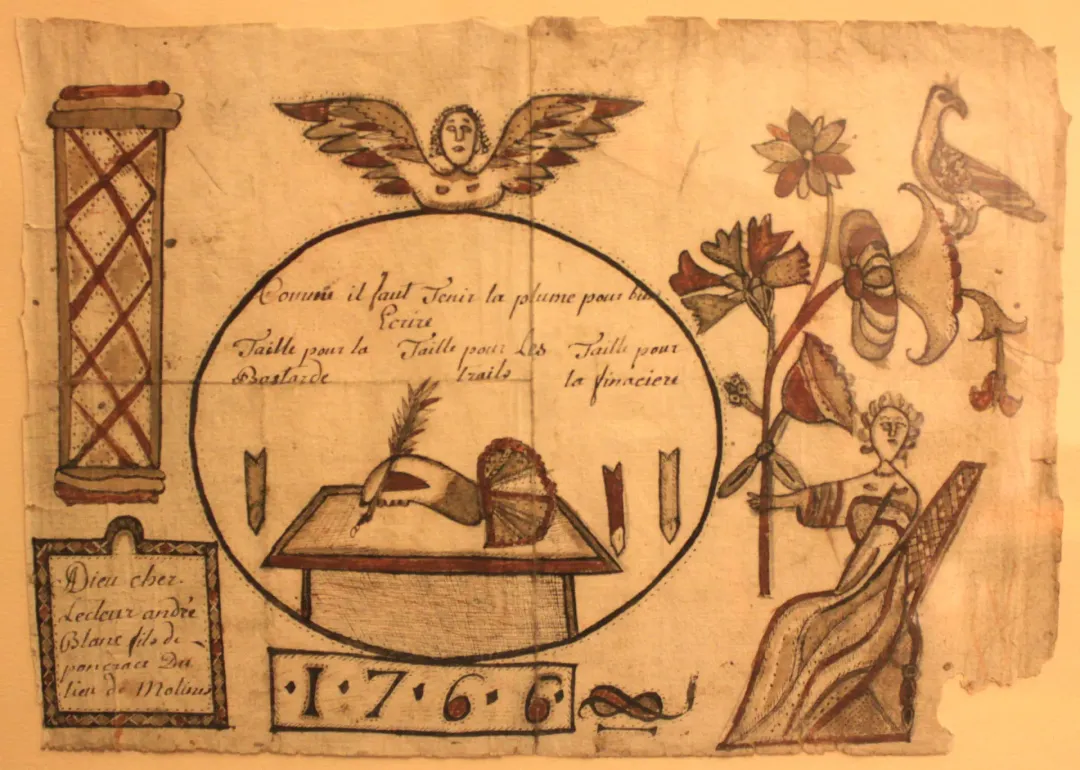 Comme il faut Tenir la plume pour bien
Ecrire
Taille pour la Bastarde
Taille pour Les traits
Taille pour la finaciere
Dieu cher
Lecleur andré
Blanc fils de
poncrace Du
lieu de Molines
1766